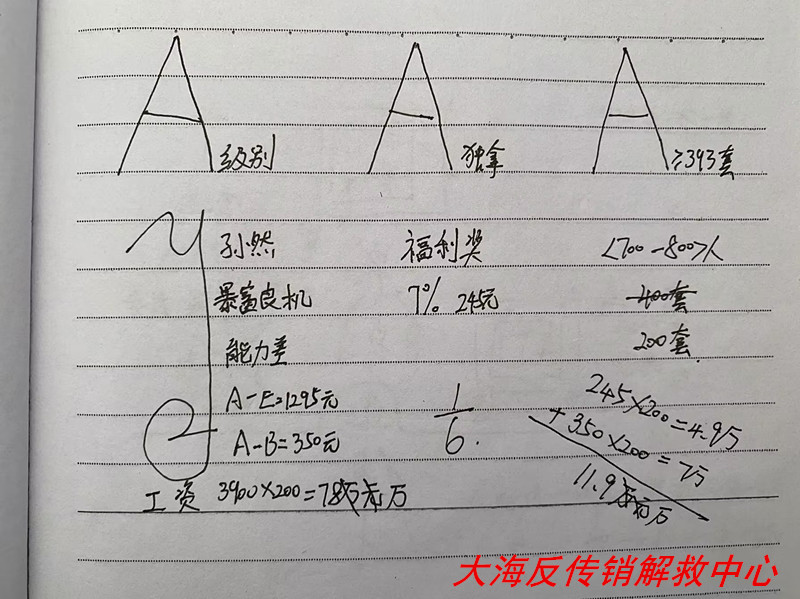 A A A
级别 独拿 ≥393套
孙燃 福利奖 <700-800>人
暴富良机 7% 245元 400套
能力差 200套
A-E=1295元 1/6. 245×200=4.9万
A-B=350元 +350×200=7万
11.9万元万
工资 3900×200=78万元万
大海反传销解救中心